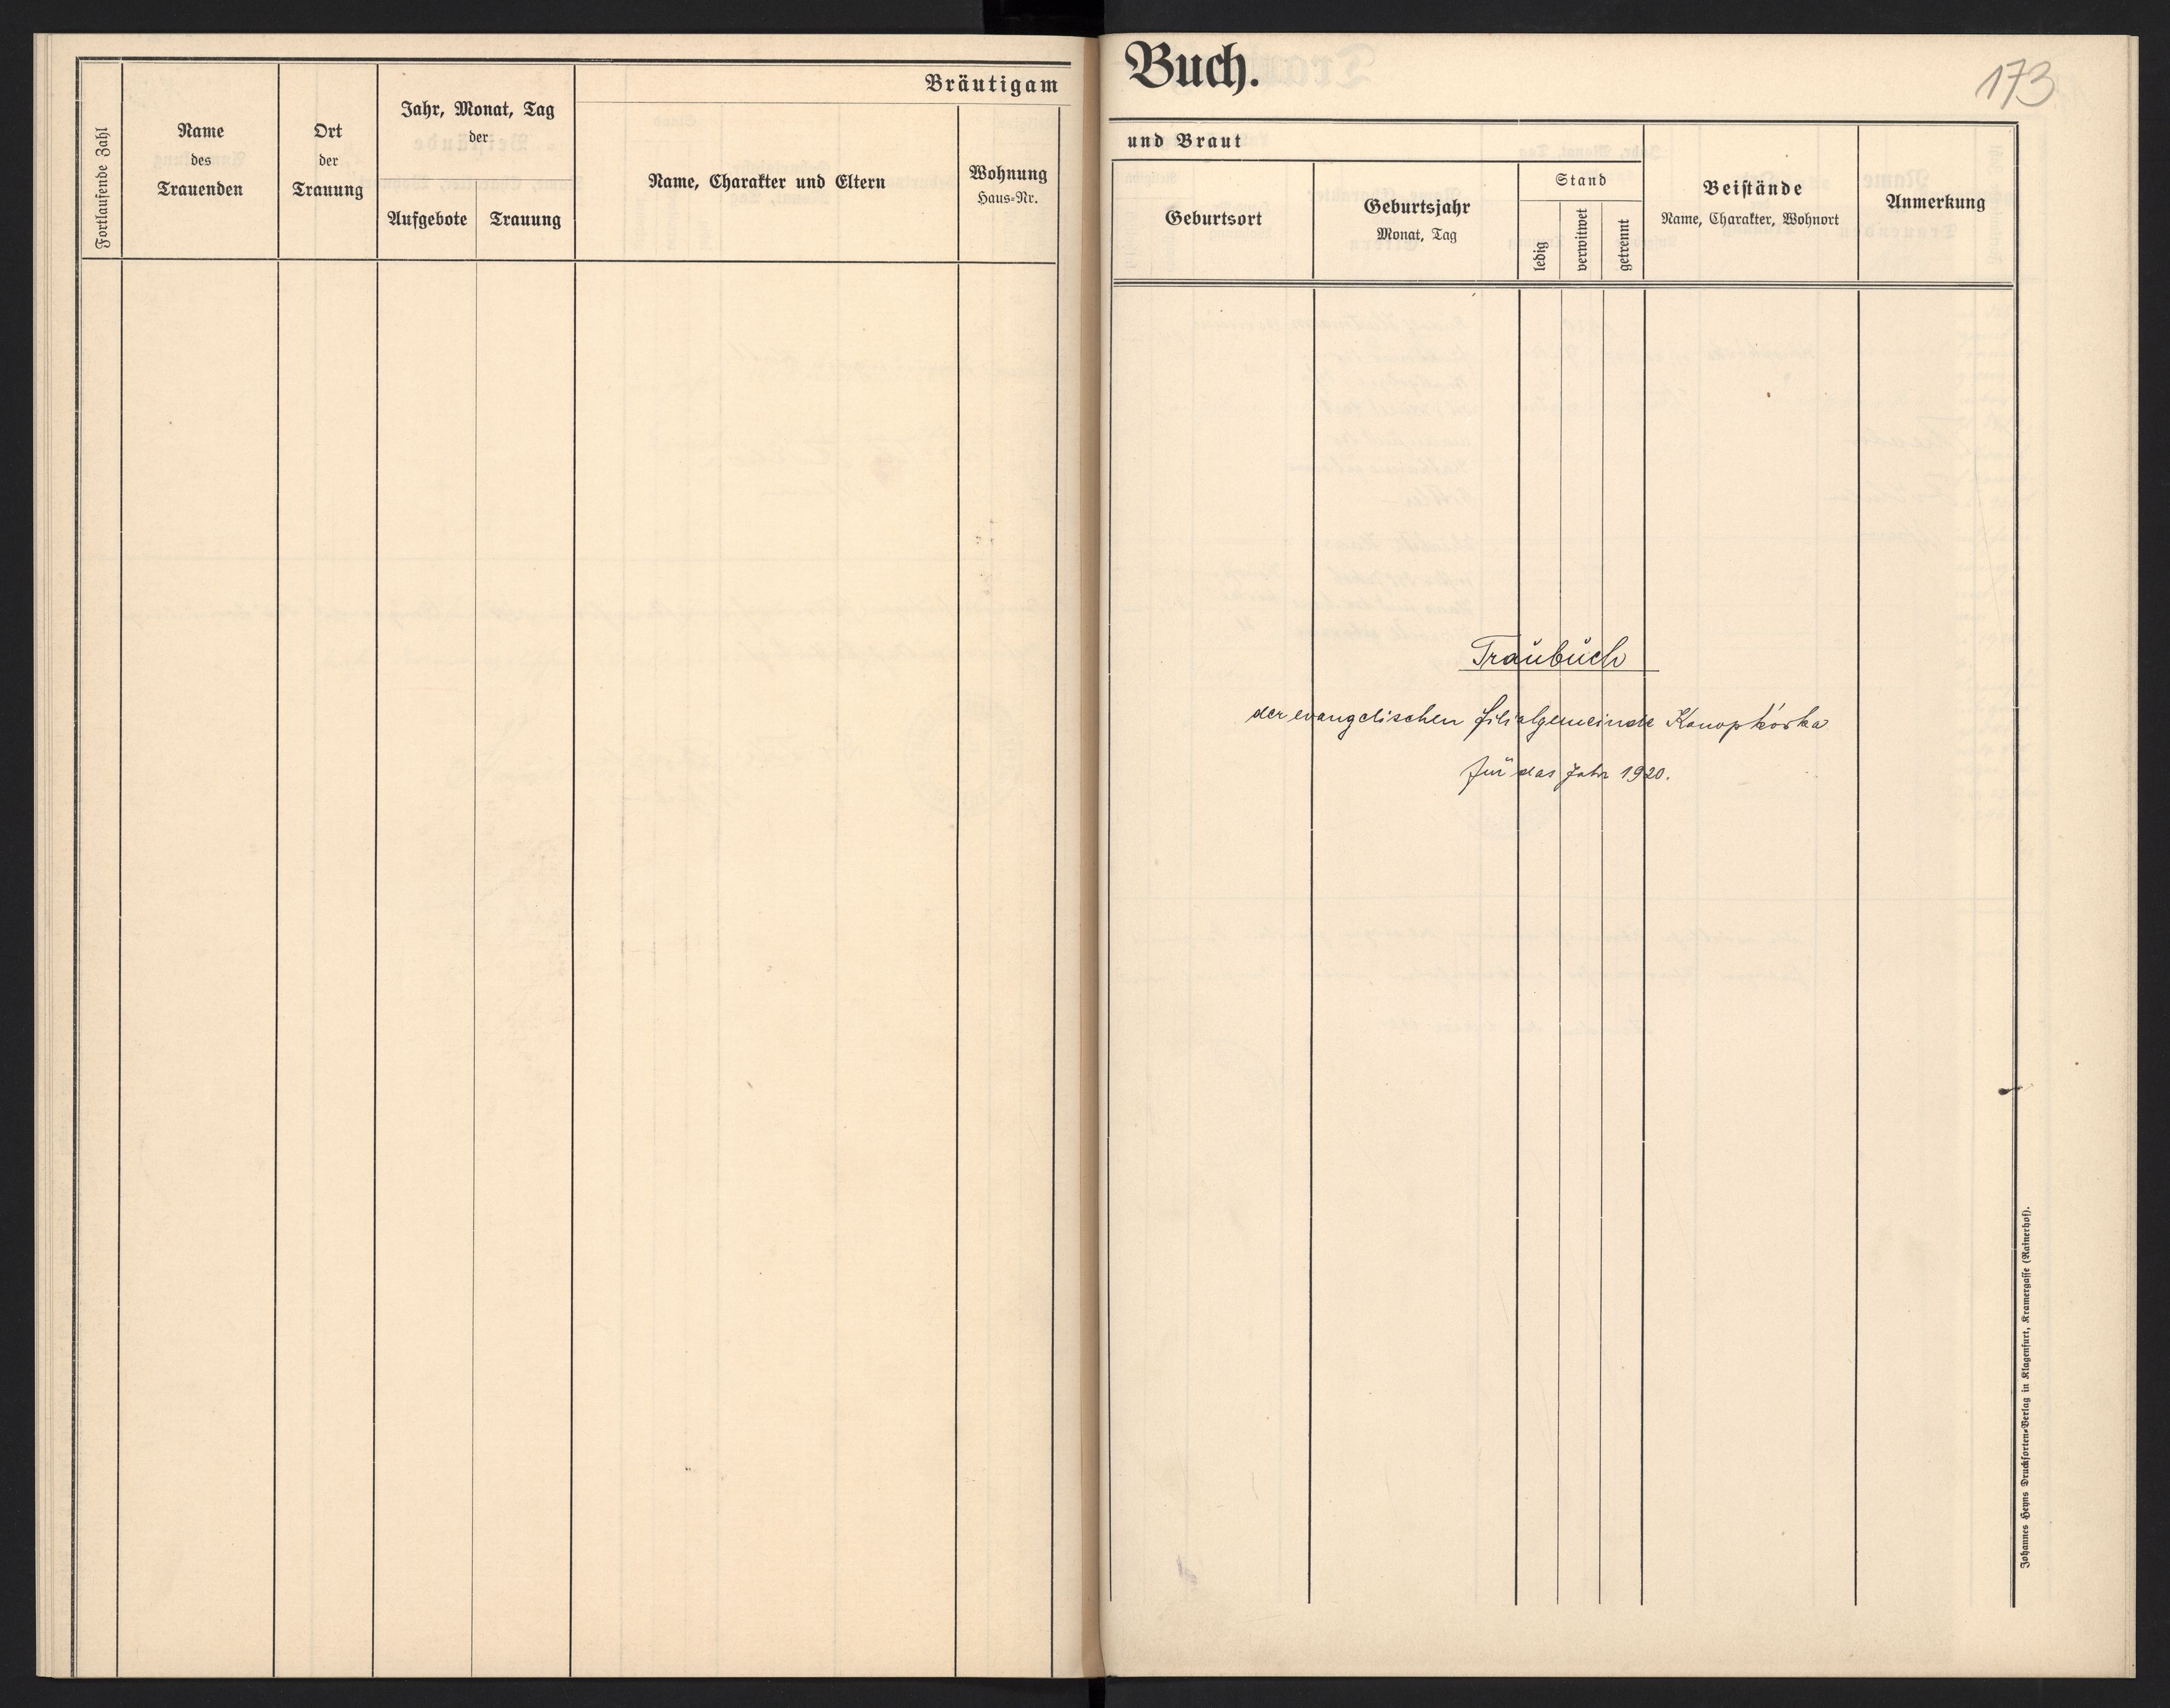 Bräutigam
Fortlaufende Zahl
Name
des
Trauenden
Ort
der
Trauung
Jahr, Monat, Tag
der
Aufgebote
Trauung
Name, Charakter und Eltern
Wohnung
Haus-Nr.
Buch.
173
und Braut
Geburtsort
Geburtsjahr
Monat, Tag
Stand
ledig
verwitwet
getrennt
Beistände
Name, Charakter, Wohnort
Anmerkung
Traŭbŭch
der evangelischen Filialgemeinde Konopkówka
für das Jahr 1920.
Johannes Heyns Drucksorten-Verlag in Klagenfurt, Kramergasse (Rainerhof).